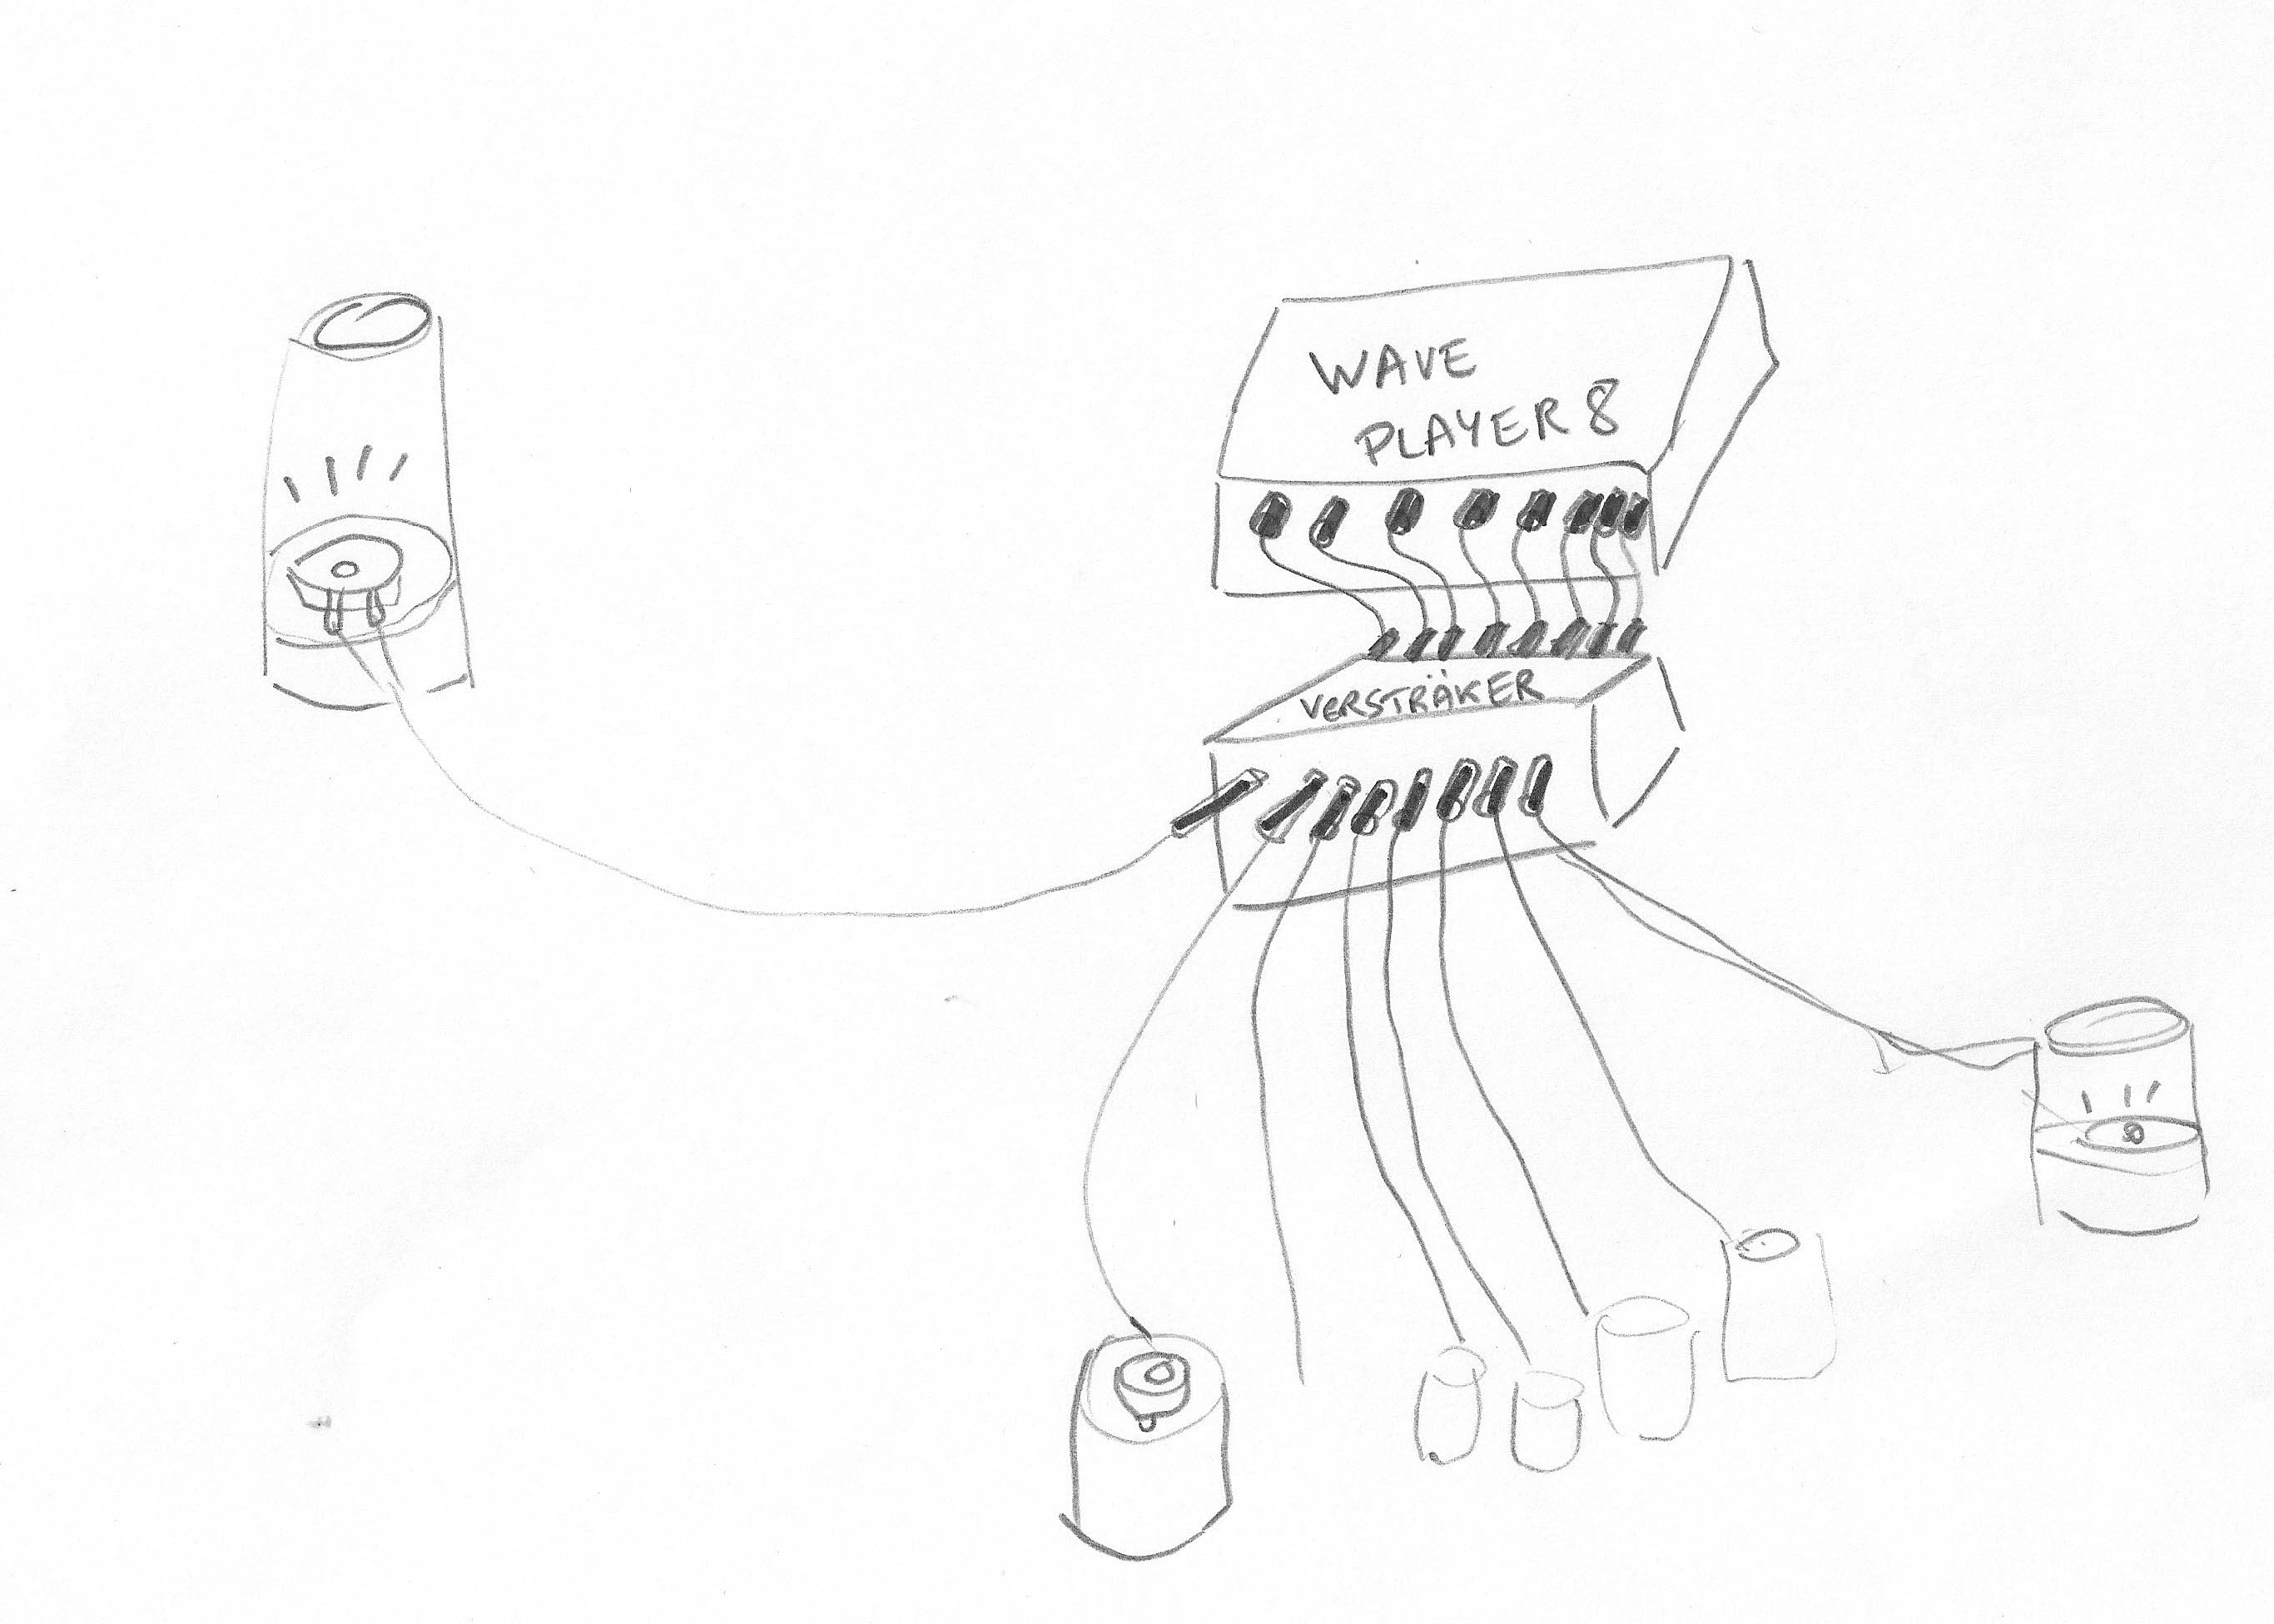 WAVE
PLAYER 8
VERSTRÄKER